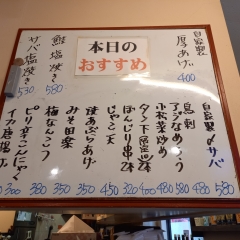 本日の
おすすめ
自家製
厚あげ 400
鮭塩焼き 580
サバ塩焼き 530
自家製〆サバ 580
アジなめろう 580
鳥刺 480
小松菜炒め 480
タン下限定 400
ぼんじり串2本 320
じゃこ天 450
焼あぶらあげ 350
みそ田楽 350
梅なんこつ 350
ピリ辛こんにゃく 380
イカ唐揚げ 300